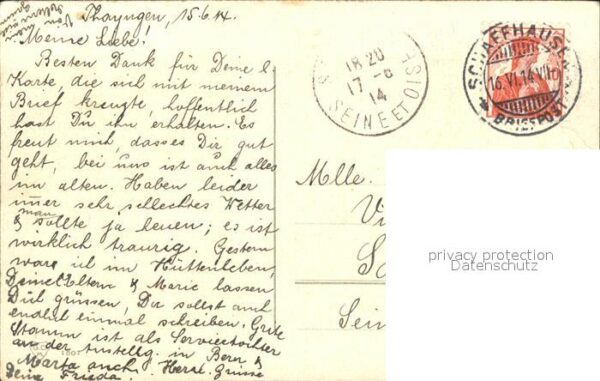 Thayngen, 15.6.14.
Meine Liebe!
Besten Dank für Deine l.
Karte, die sich mit meinem
Brief kreuzte, hoffentlich
hast Du ihn erhalten. Es
freut mich, dass es Dir gut
geht, bei uns ist auch alles
im alten. Haben leider
immer sehr schlechtes Wetter
& man sollte ja heuen; es ist
wirklich traurig. Gestern
ware ich im Hüttenleben,
Deine Eltern & Marie lassen
Dich grüssen, Du sollst auch
endlich einmal schreiben. Grite
Stamm ist als Serviertochter
an der Ausstellg. in Bern &
Marta auch. Herzl. Grüsse
Deine Frieda.
18 20
17 - 6
14
SEINE ET OISE
SCHAFFHAUSEN
16. VI. 14. VIII
BRIEFPOST
Mlle.
Vi
S
Sein
privacy protection
Datenschutz